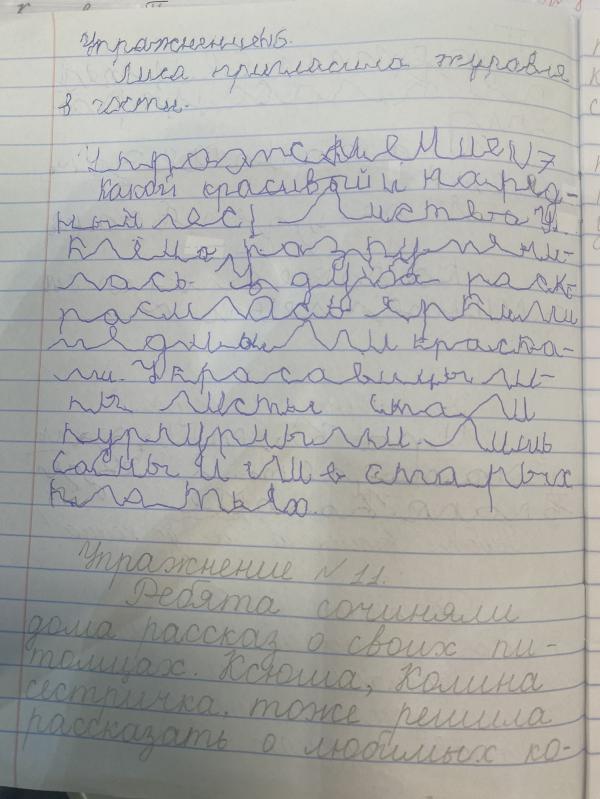 Упражнение №6.
Лиса пригласила журавля
в гости.
Упражнение №7
Какой красивый и наряд-
ный лес! Листва у
клёна разрумяни-
лась. У дуба раск-
расилась яркими
медными крас-
ми. У красавицы ли-
пы листы стали
пурпурными. Лишь
сосны и ели в старых
платьях.
Упражнение №11.
Ребята сочиняли
дома рассказ о своих пи-
томцах. Ксюша, Колина
сестричка, тоже решила
рассказать о любимых ко-